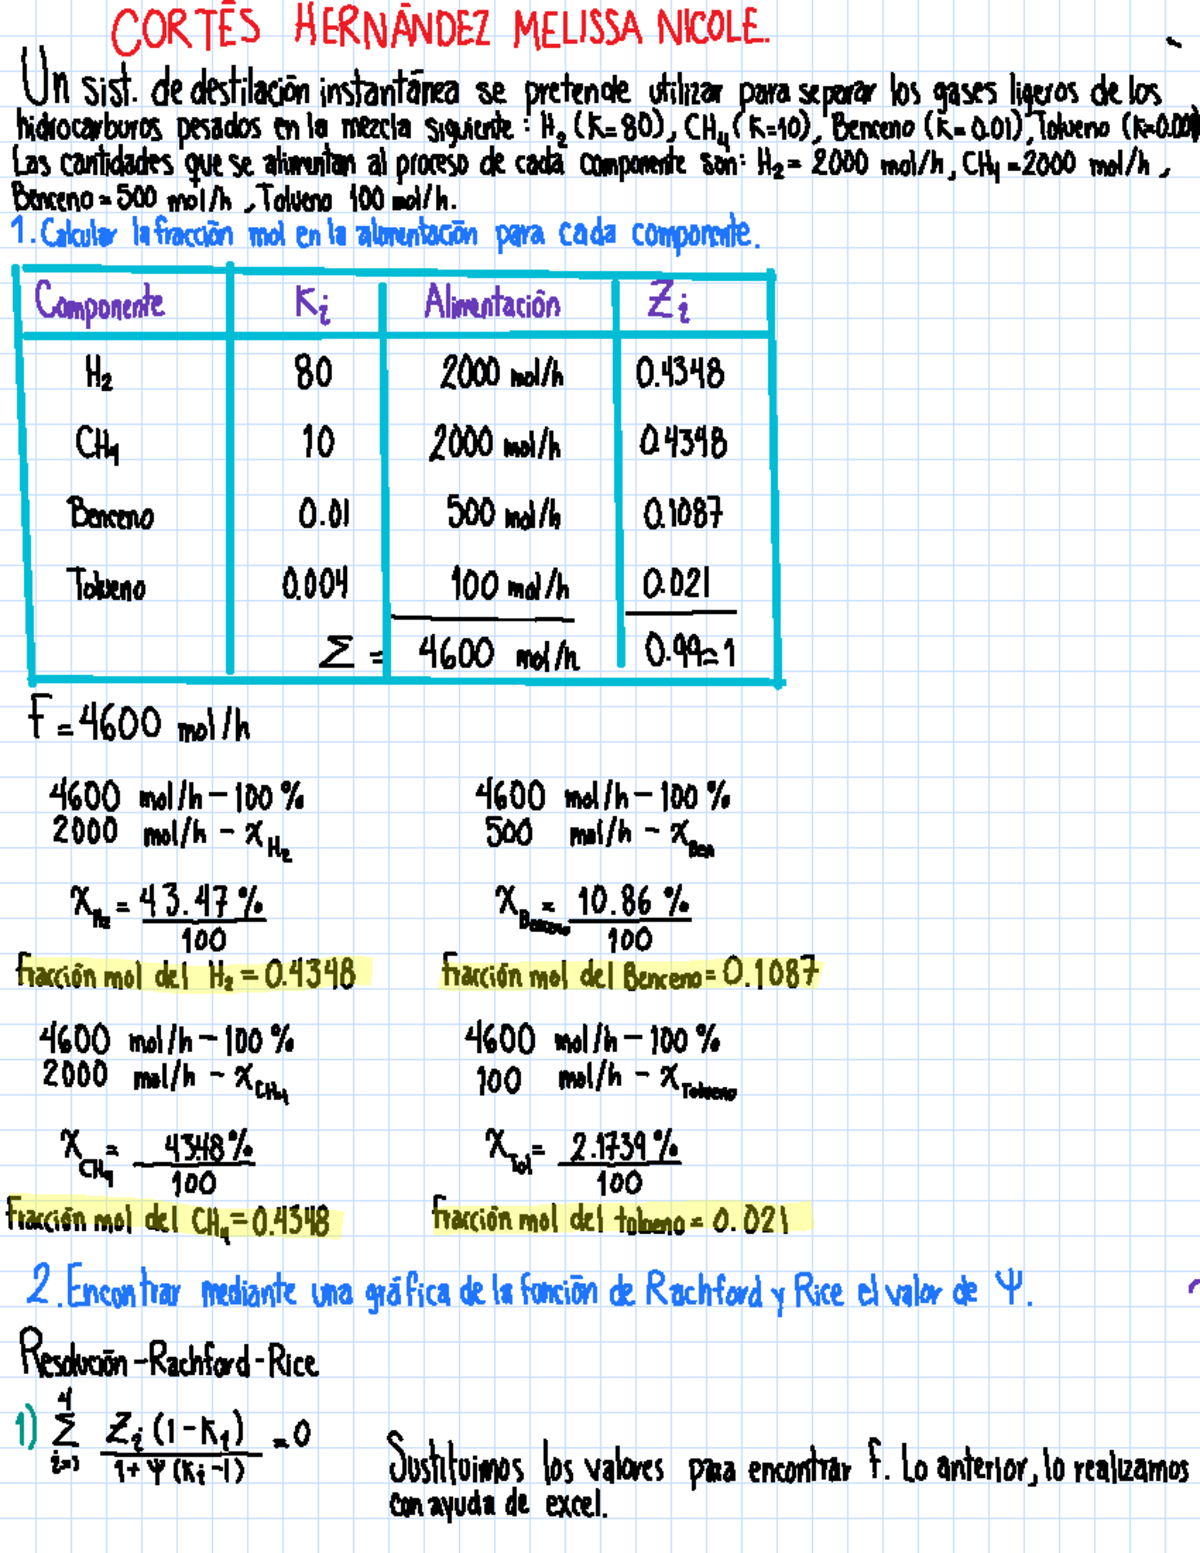 CORTÉS HERNÁNDEZ MELISSA NICOLE.
Un sist. de destilación instantánea se pretende utilizar para separar los gases ligeros de los
hidrocarburos pesados en la mezcla siguiente: H2 (K=80), CH4 (K=10), Benceno (K=0.01), Tolueno (K=0.004
Las cantidades que se alimentan al proceso de cada componente son: H2= 2000 mol/h, CH4=2000 mol/h,
Benceno=500 mol/h, Tolueno 100 mol/h.
1. Calcular la fracción mol en la alimentación para cada componente.
Componente Ki Alimentación Zi
H2 80 2000 mol/h 0.4348
CH4 10 2000 mol/h 0.4348
Benceno 0.01 500 mol/h 0.1087
Tolueno 0.004 100 mol/h 0.021
Σ = 4600 mol/h 0.99≈1
F=4600 mol/h
4600 mol/h – 100 % 4600 mol/h – 100 %
2000 mol/h – xH2 500 mol/h – xBen
xH2 = 43.47 % xBenceno = 10.86 %
100 100
fracción mol del H2 = 0.4348 fracción mol del Benceno= 0.1087
4600 mol/h – 100 % 4600 mol/h – 100 %
2000 mol/h – xCH4 100 mol/h – xTolueno
xCH4 = 43.48 % xTol = 2.1739 %
100 100
fracción mol del CH4=0.4348 fracción mol del tolueno = 0.021
2. Encontrar mediante una gráfica de la función de Rachford y Rice el valor de Ψ.
Resolución-Rachford-Rice
1) 4 Σ i=1 Zi (1-Ki) = 0
1+Ψ(Ki-1)
Sustituimos los valores para encontrar f. Lo anterior, lo realizamos
con ayuda de excel.